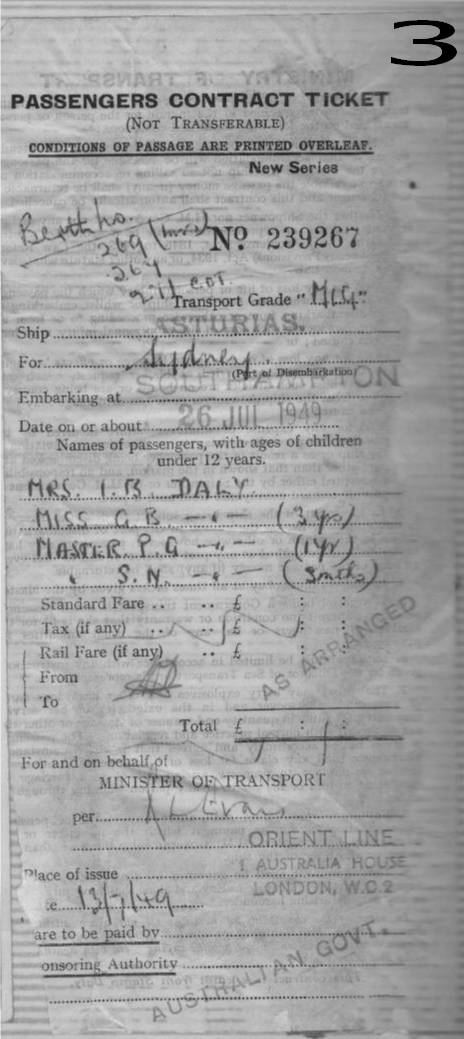 3
PASSENGERS CONTRACT TICKET
(NOT TRANSFERABLE)
CONDITIONS OF PASSAGE ARE PRINTED OVERLEAF.
New Series
Berth No.
269
267
271 COT.
No. 239267
Transport Grade "
Ship ASTURIAS.
For Sydney
(Port of Disembarkation)
Embarking at SOUTHAMPTON
Date on or about 26 JUL 1949
Names of passengers, with ages of children
under 12 years.
MRS. I. B. DALY.
MISS G. B. —"— (3 yrs)
MASTER. P. G —"— (1 yr)
" S. N. —"— (3 mths)
Standard Fare .. .. £ : :
Tax (if any) .. £ : :
Rail Fare (if any) .. £ : :
From
To
AS ARRANGED
Total £ : :
For and on behalf of
MINISTER OF TRANSPORT
per
ORIENT LINE
Place of issue 1 AUSTRALIA HOUSE
LONDON, W.C.2
13/7/49
are to be paid by
onsoring Authority
AUSTRALIAN GOVT.